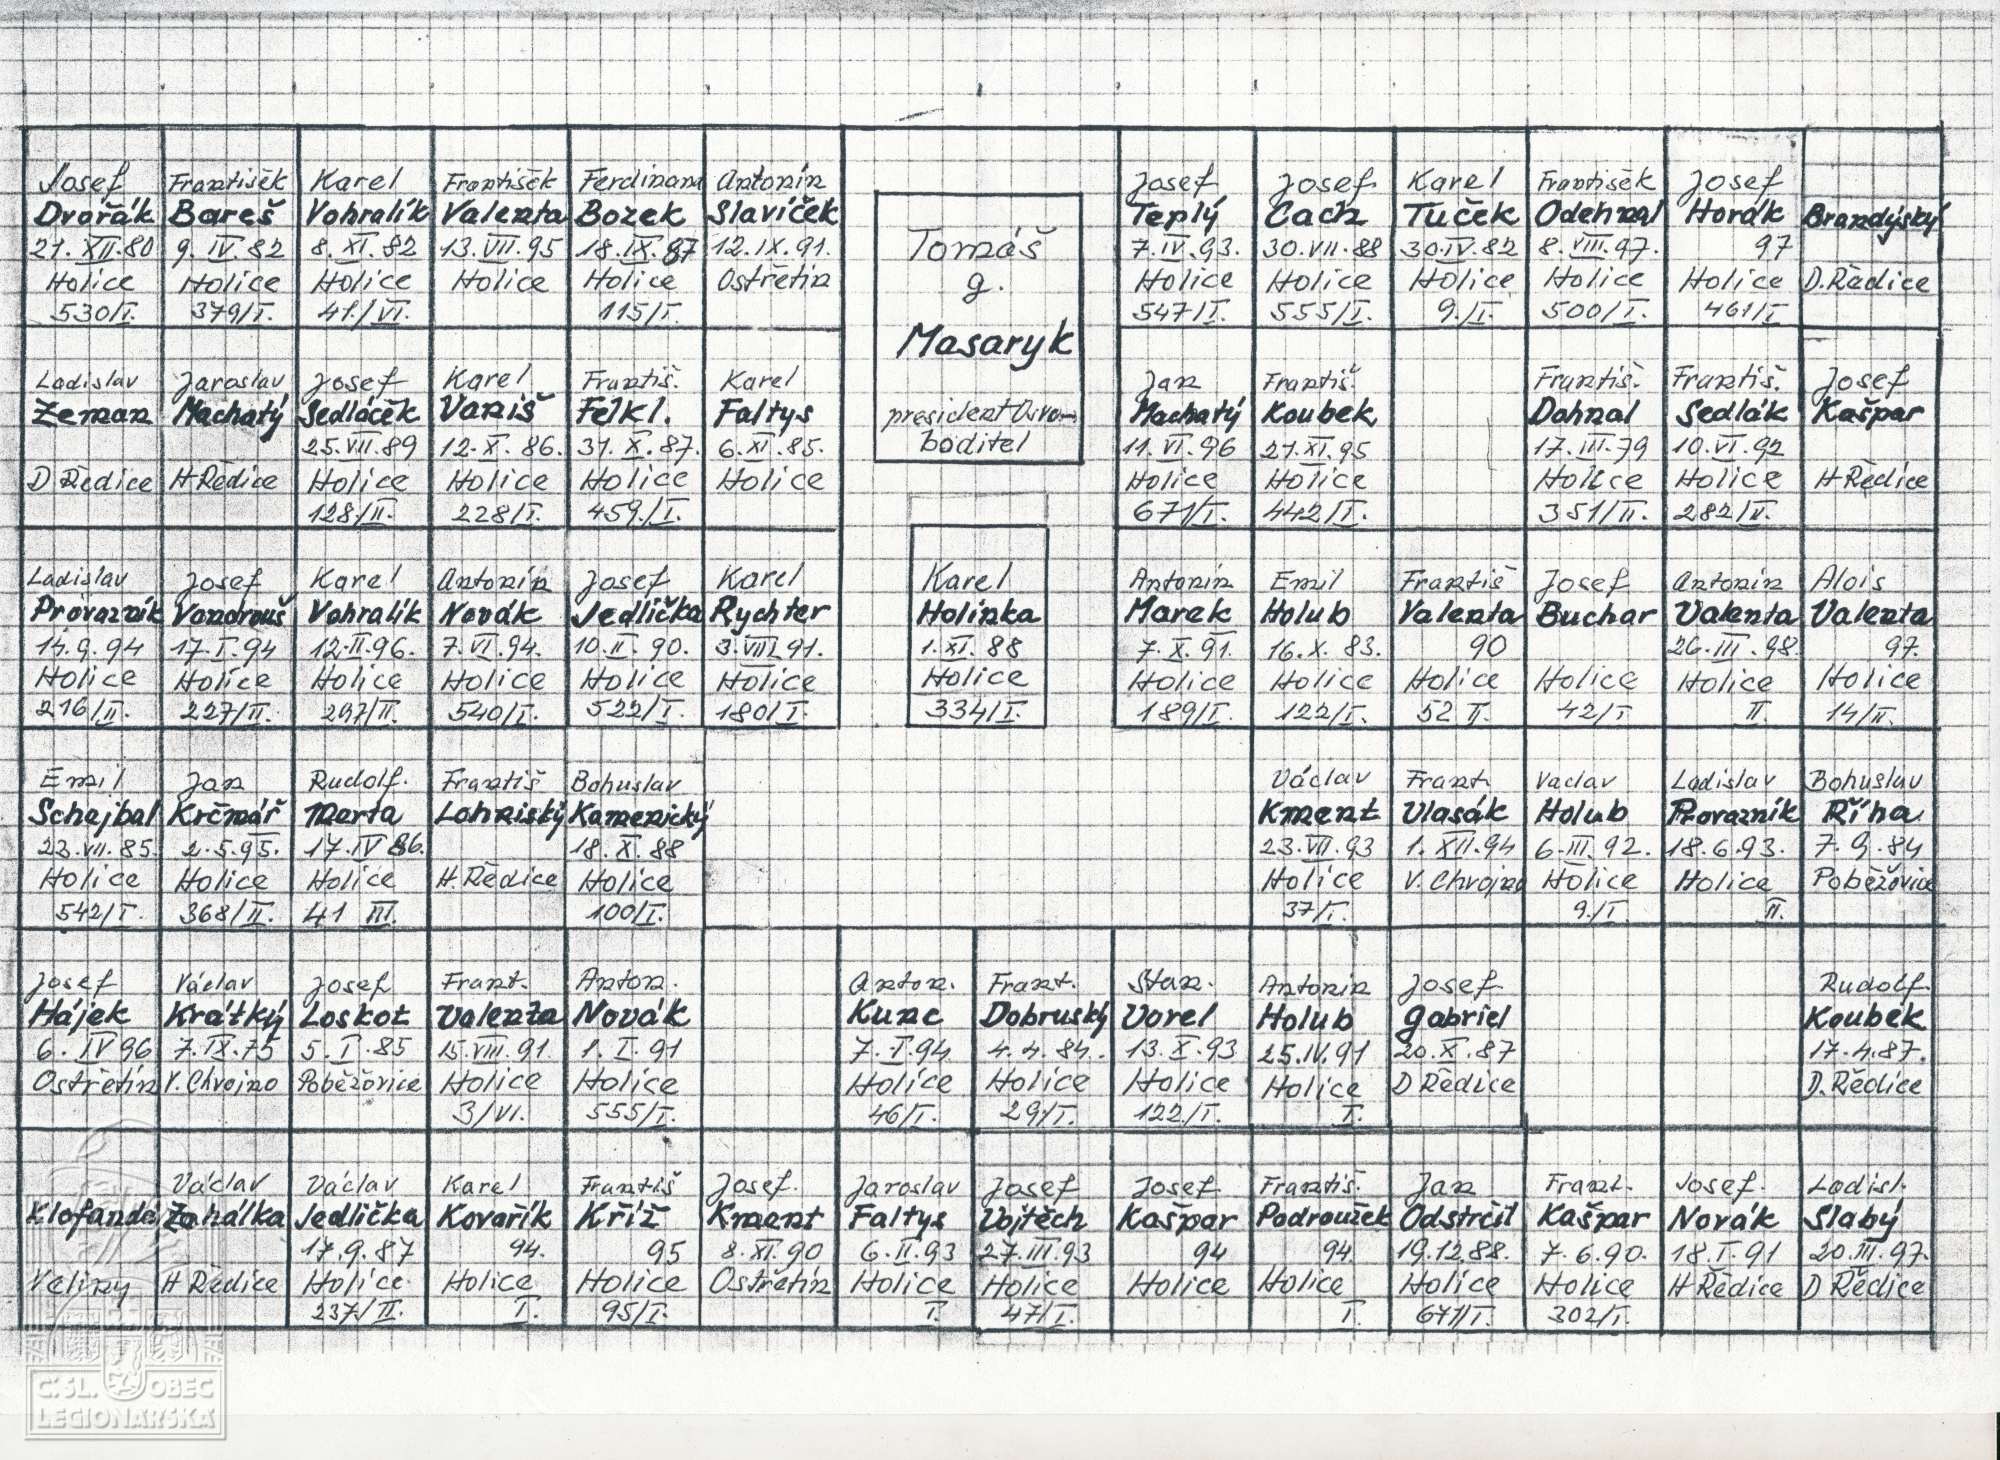 Josef
Dvořák
21. XII. 80
Holice
530/I.
František
Bareš
9. IV. 82
Holice
379/I.
Karel
Vohralík
8. XI. 82
Holice
41./VI.
František
Valenta
13. VII. 95
Holice
Ferdinand
Bozek
18. IX. 97
Holice
115/I.
Antonín
Slavíček
12. IX. 91.
Ostřetín
Tomáš
g.
Masaryk
president Osvo-
boditel
Josef
Teplý
7. IV. 93.
Holice
547/I.
Josef
Cach
30. VII. 88
Holice
555/I.
Karel
Tuček
30. IV. 82
Holice
9./I.
František
Odehnal
8. VIII. 97.
Holice
500/I.
Josef
Horák
97
Holice
461/I
Brandýský
D. Ředice
Ladislav
Zeman
D Ředice
Jaroslav
Machatý
H Ředice
Josef
Sedláček
25. VII. 89
Holice
128/II.
Karel
Vaniš
12. X. 86.
Holice
228/I.
Františ.
Felkl.
31. X. 87.
Holice
459./I.
Karel
Faltys
6. XI. 85.
Holice
Jan
Machatý
11. VI. 96
Holice
671/I.
Františ.
Koubek
21. XI. 95
Holice
442/I.
Františ.
Dohnal
17. III. 79
Holice
351/II.
Františ.
Sedlák
10. VI. 92
Holice
282/II.
Josef
Kašpar
H Ředice
Ladislav
Provazník
14. 9. 94
Holice
216/II.
Josef
Vondrouš
17. I. 94
Holice
227/II.
Karel
Vohralík
12. II. 96.
Holice
297/II.
Antonín
Novák
7. VI. 94.
Holice
540/I.
Josef
Jedlička
10. II. 90.
Holice
522/I.
Karel
Rychter
3. VIII. 91.
Holice
180/I.
Karel
Holinka
1. XI. 88
Holice
334/I.
Antonín
Marek
7. X. 91.
Holice
189/I.
Emil
Holub
16. X. 83.
Holice
122/I.
Františ
Valenta
90
Holice
52 II.
Josef
Buchar
Holice
42/I
Antonín
Valenta
26. III. 98.
Holice
II.
Alois
Valenta
97.
Holice
14/II.
Emil
Schejbal
23. VII. 85.
Holice
542/I.
Jan
Krčmář
2. 5. 95.
Holice
368/II.
Rudolf.
Merta
17. IV 86.
Holice
41 III.
Františ
Lohniský
H. Ředice
Bohuslav
Kamenický
18. XI. 88
Holice
100/I.
Václav
Kment
23. VII. 93
Holice
37/I.
Frant.
Vlasák
1. XII. 94
V. Chvojno
Vaclav
Holub
6. III. 92.
Holice
9./I.
Ladislav
Provazník
18. 6. 93.
Holice
II.
Bohuslav
Říha
7. 9. 84
Poběžovice
Josef
Hájek
6. IV 96
Ostřetín
Václav
Krátký
7. IX. 75
V. Chvojno
Josef
Loskot
5. I. 85
Poběžovice
Frant.
Valenta
15. VIII. 91.
Holice
3/VI.
Anton.
Novák
1. I. 91
Holice
555/I.
Anton.
Kunc
7. I. 94
Holice
46/I.
Frant.
Dobruský
4. 4. 84.
Holice
29/I.
Stan.
Vorel
13. X. 93
Holice
122./I.
Antonin
Holub
25. IV. 91
Holice
I.
Josef
Gabriel
20. X. 87
D Ředice
Rudolf.
Koubek
17. 4. 87.
D. Ředice
Klofanda
Veliny
Václav
Zahálka
H Ředice
Václav
Jedlička
17. 9. 87
Holice
237/II.
Karel
Kovařík
94.
Holice
I.
Františ
Kříž
95
Holice
95/I.
Josef
Kment
8. XI. 90
Ostřetín
Jaroslav
Faltys
6. II. 93
Holice
I.
Josef
Vojtěch
27. III. 93
Holice
47/I.
Josef
Kašpar
94
Holice
Františ.
Podroužek
94.
Holice
I.
Jan
Odstrčil
19. 12. 88.
Holice
671/I.
Frant.
Kašpar
7. 6. 90.
Holice
302/I.
Josef.
Novák
18. I. 91
H Ředice
Ladisl.
Slabý
20. III. 97.
D Ředice
Č. SL. OBEC
LEGIONÁŘSKÁ